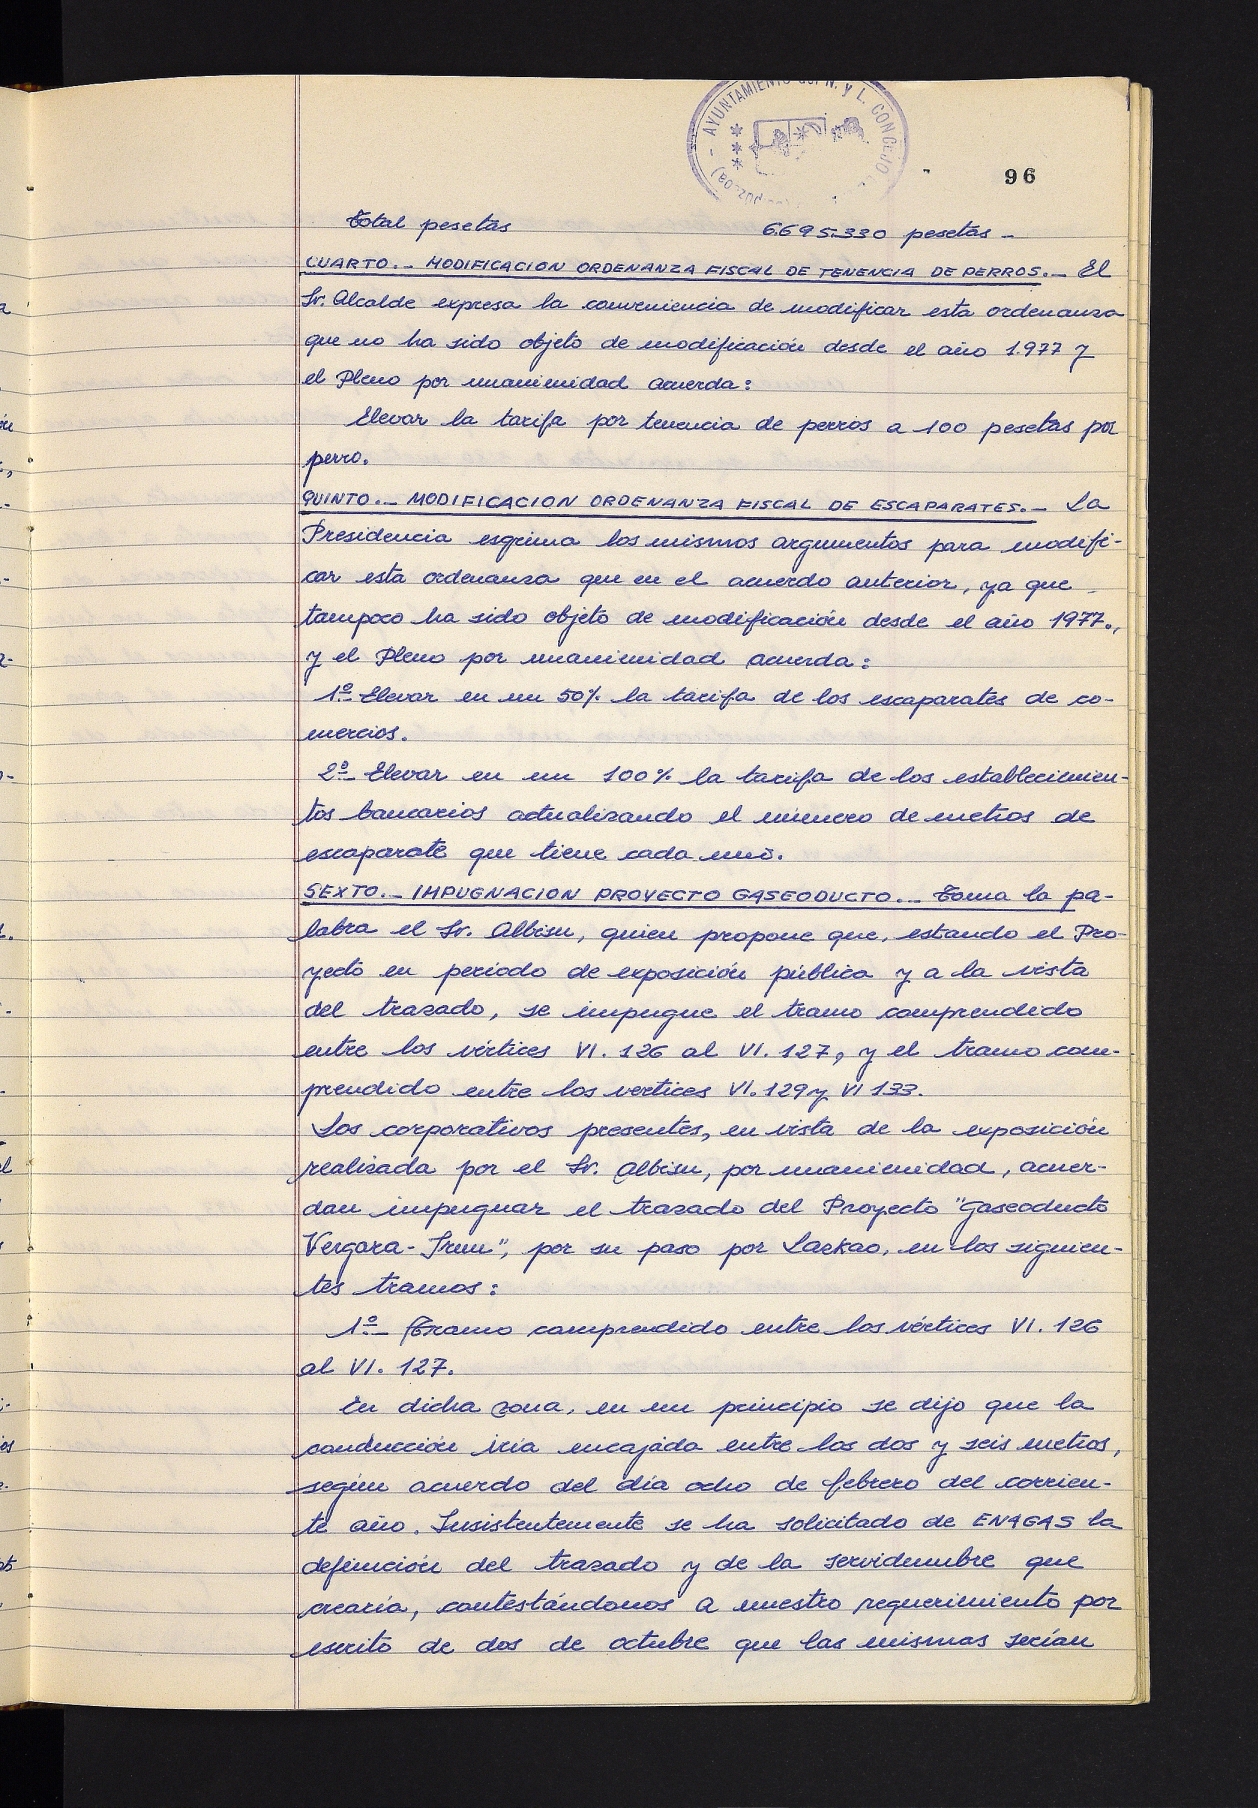 AYUNTAMIENTO del N. y L. CONCEJO
96
Total pesetas 6.695.330 pesetas -
CUARTO.- MODIFICACION ORDENANZA FISCAL DE TENENCIA DE PERROS.- El
Sr. Alcalde expresa la conveniencia de modificar esta ordenanza
que no ha sido objeto de modificación desde el año 1.977 y
el Pleno por unanimidad acuerda:
Elevar la tarifa por tenencia de perros a 100 pesetas por
perro.
QUINTO.- MODIFICACION ORDENANZA FISCAL DE ESCAPARATES.- La
Presidencia esgrima los mismos argumentos para modifi-
car esta ordenanza que en el acuerdo anterior, ya que
tampoco ha sido objeto de modificación desde el año 1977.,
y el Pleno por unanimidad acuerda:
1º- Elevar en un 50% la tarifa de los escaparates de co-
mercios.
2º- Elevar en un 100% la tarifa de los establecimien-
tos bancarios actualizando el número de metros de
escaparate que tiene cada uno.
SEXTO.- IMPUGNACION PROYECTO GASEODUCTO.- Toma la pa-
labra el Sr. Albisu, quien propone que, estando el Pro-
yecto en período de exposición pública y a la vista
del trazado, se impugne el tramo comprendido
entre los vértices VI. 126 al VI. 127, y el tramo com-
prendido entre los vertices VI. 129 y VI 133.
Los corporativos presentes, en vista de la exposición
realizada por el Sr. Albisu, por unanimidad, acuer-
dan impugnar el trazado del Proyecto "Gaseoducto
Vergara-Irun", por su paso por Lazkao, en los siguien-
tes tramos:
1º- Tramo comprendido entre los vértices VI. 126
al VI. 127.
En dicha zona, en un principio se dijo que la
conducción iría encajada entre los dos y seis metros,
según acuerdo del día ocho de febrero del corrien-
te año. Insistentemente se ha solicitado de ENAGAS la
definición del trazado y de la servidumbre que
crearía, contestándonos a nuestro requerimiento por
escrito de dos de octubre que las mismas serían